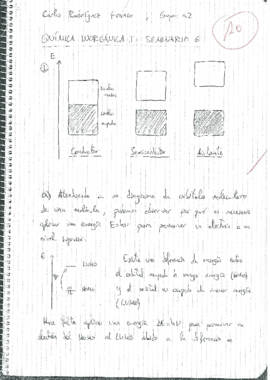 Carlos Rodríguez Franco ; Grupo A2
10
QUÍMICA INORGÁNICA I: SEMINARIO 6
①
E
Conductor
Semiconductor
Aislante
a) Atendiendo a un diagrama de orbitales moleculares
de una molécula, podemos observar por qué es necesario
aplicar una energía Eextar para promover un electrón a un
nivel superior.
E
LUMO
HOMO
Existe una diferencia de energía entre
el orbital ocupado de mayor energía (HOMO)
y el orbital no ocupado de menor energía
(LUMO)
Hace falta aplicar una energía para promover un
electrón del HOMO al LUMO debido a la diferencia de